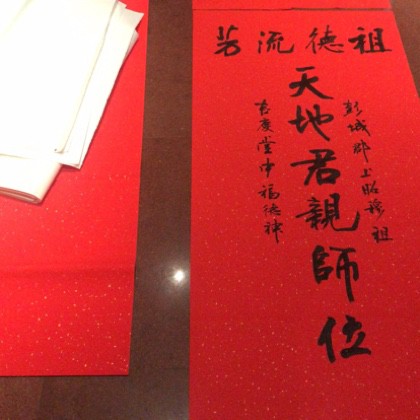 祖德流芳
彭城郡上昭穆祖
天地君親師位
吉慶堂中福德神